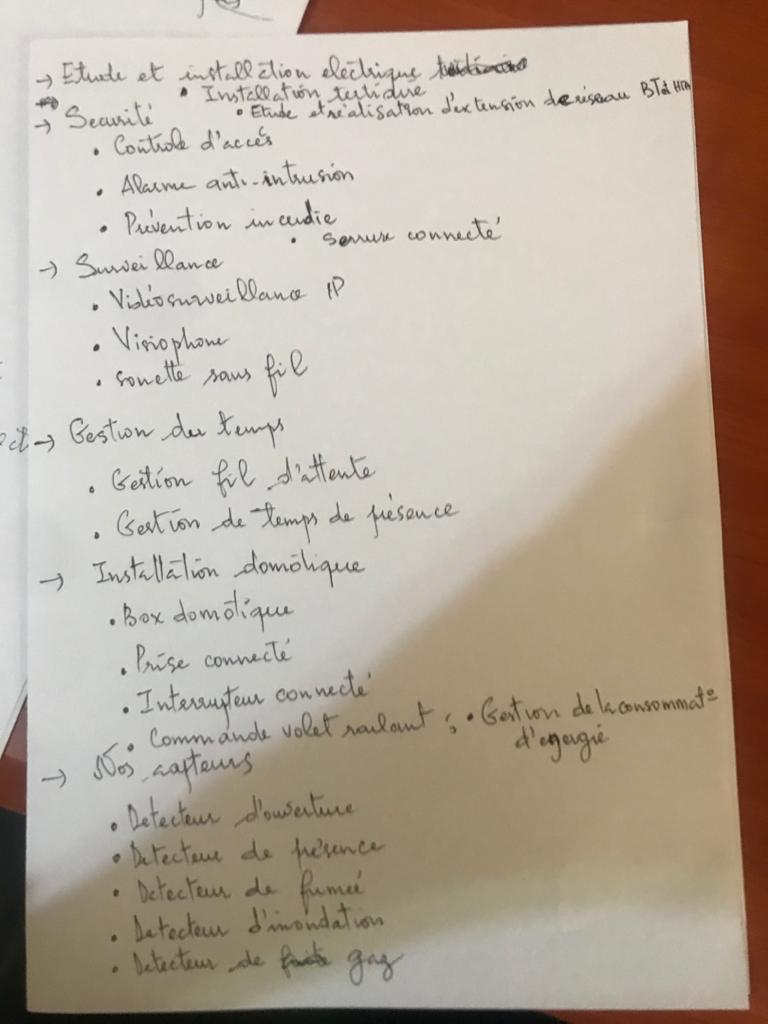 → Etude et installation electrique
• Installation tertiaire
• Etude et réalisation d'extension de réseau BT et HTA
→ Securité
• Controle d'accés
• Alarme anti-intrusion
• Prévention incendie
• Serrure connecté
→ Surveillance
• Vidéosurveillance IP
• Visiophone
• sonette sans fil
→ Gestion du temps
• Gestion fil d'attente
• Gestion de temps de présence
→ Installation domotique
• Box domotique
• Prise connecté
• Interrupteur connecté
• Commande volet raulant ; • Gestion de la consommat°
d'energie
→ Nos capteurs
• Detecteur d'ouverture
• Detecteur de présence
• Detecteur de fumeé
• Detecteur d'inondation
• Detecteur de gaz